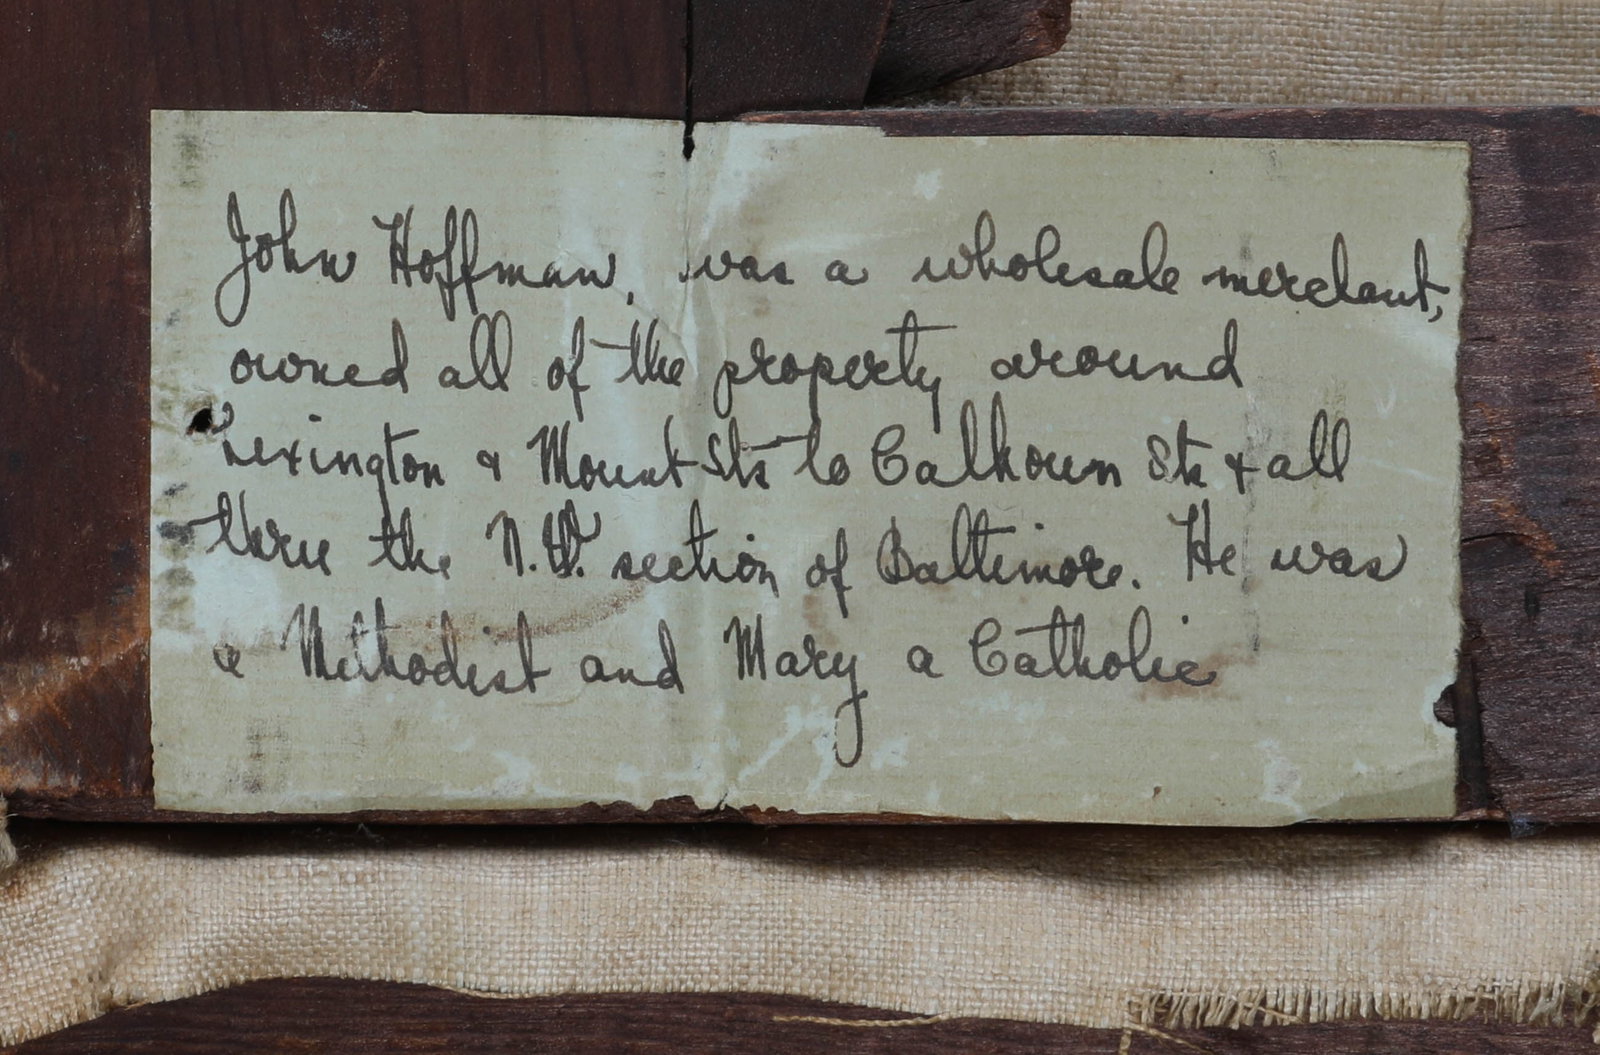 John Hoffman, was a wholesale merchant,
owned all of the property around
Lexington & Mount Sts to Calhoun Sts & all
thru the N.W. section of Baltimore. He was
a Methodist and Mary a Catholic